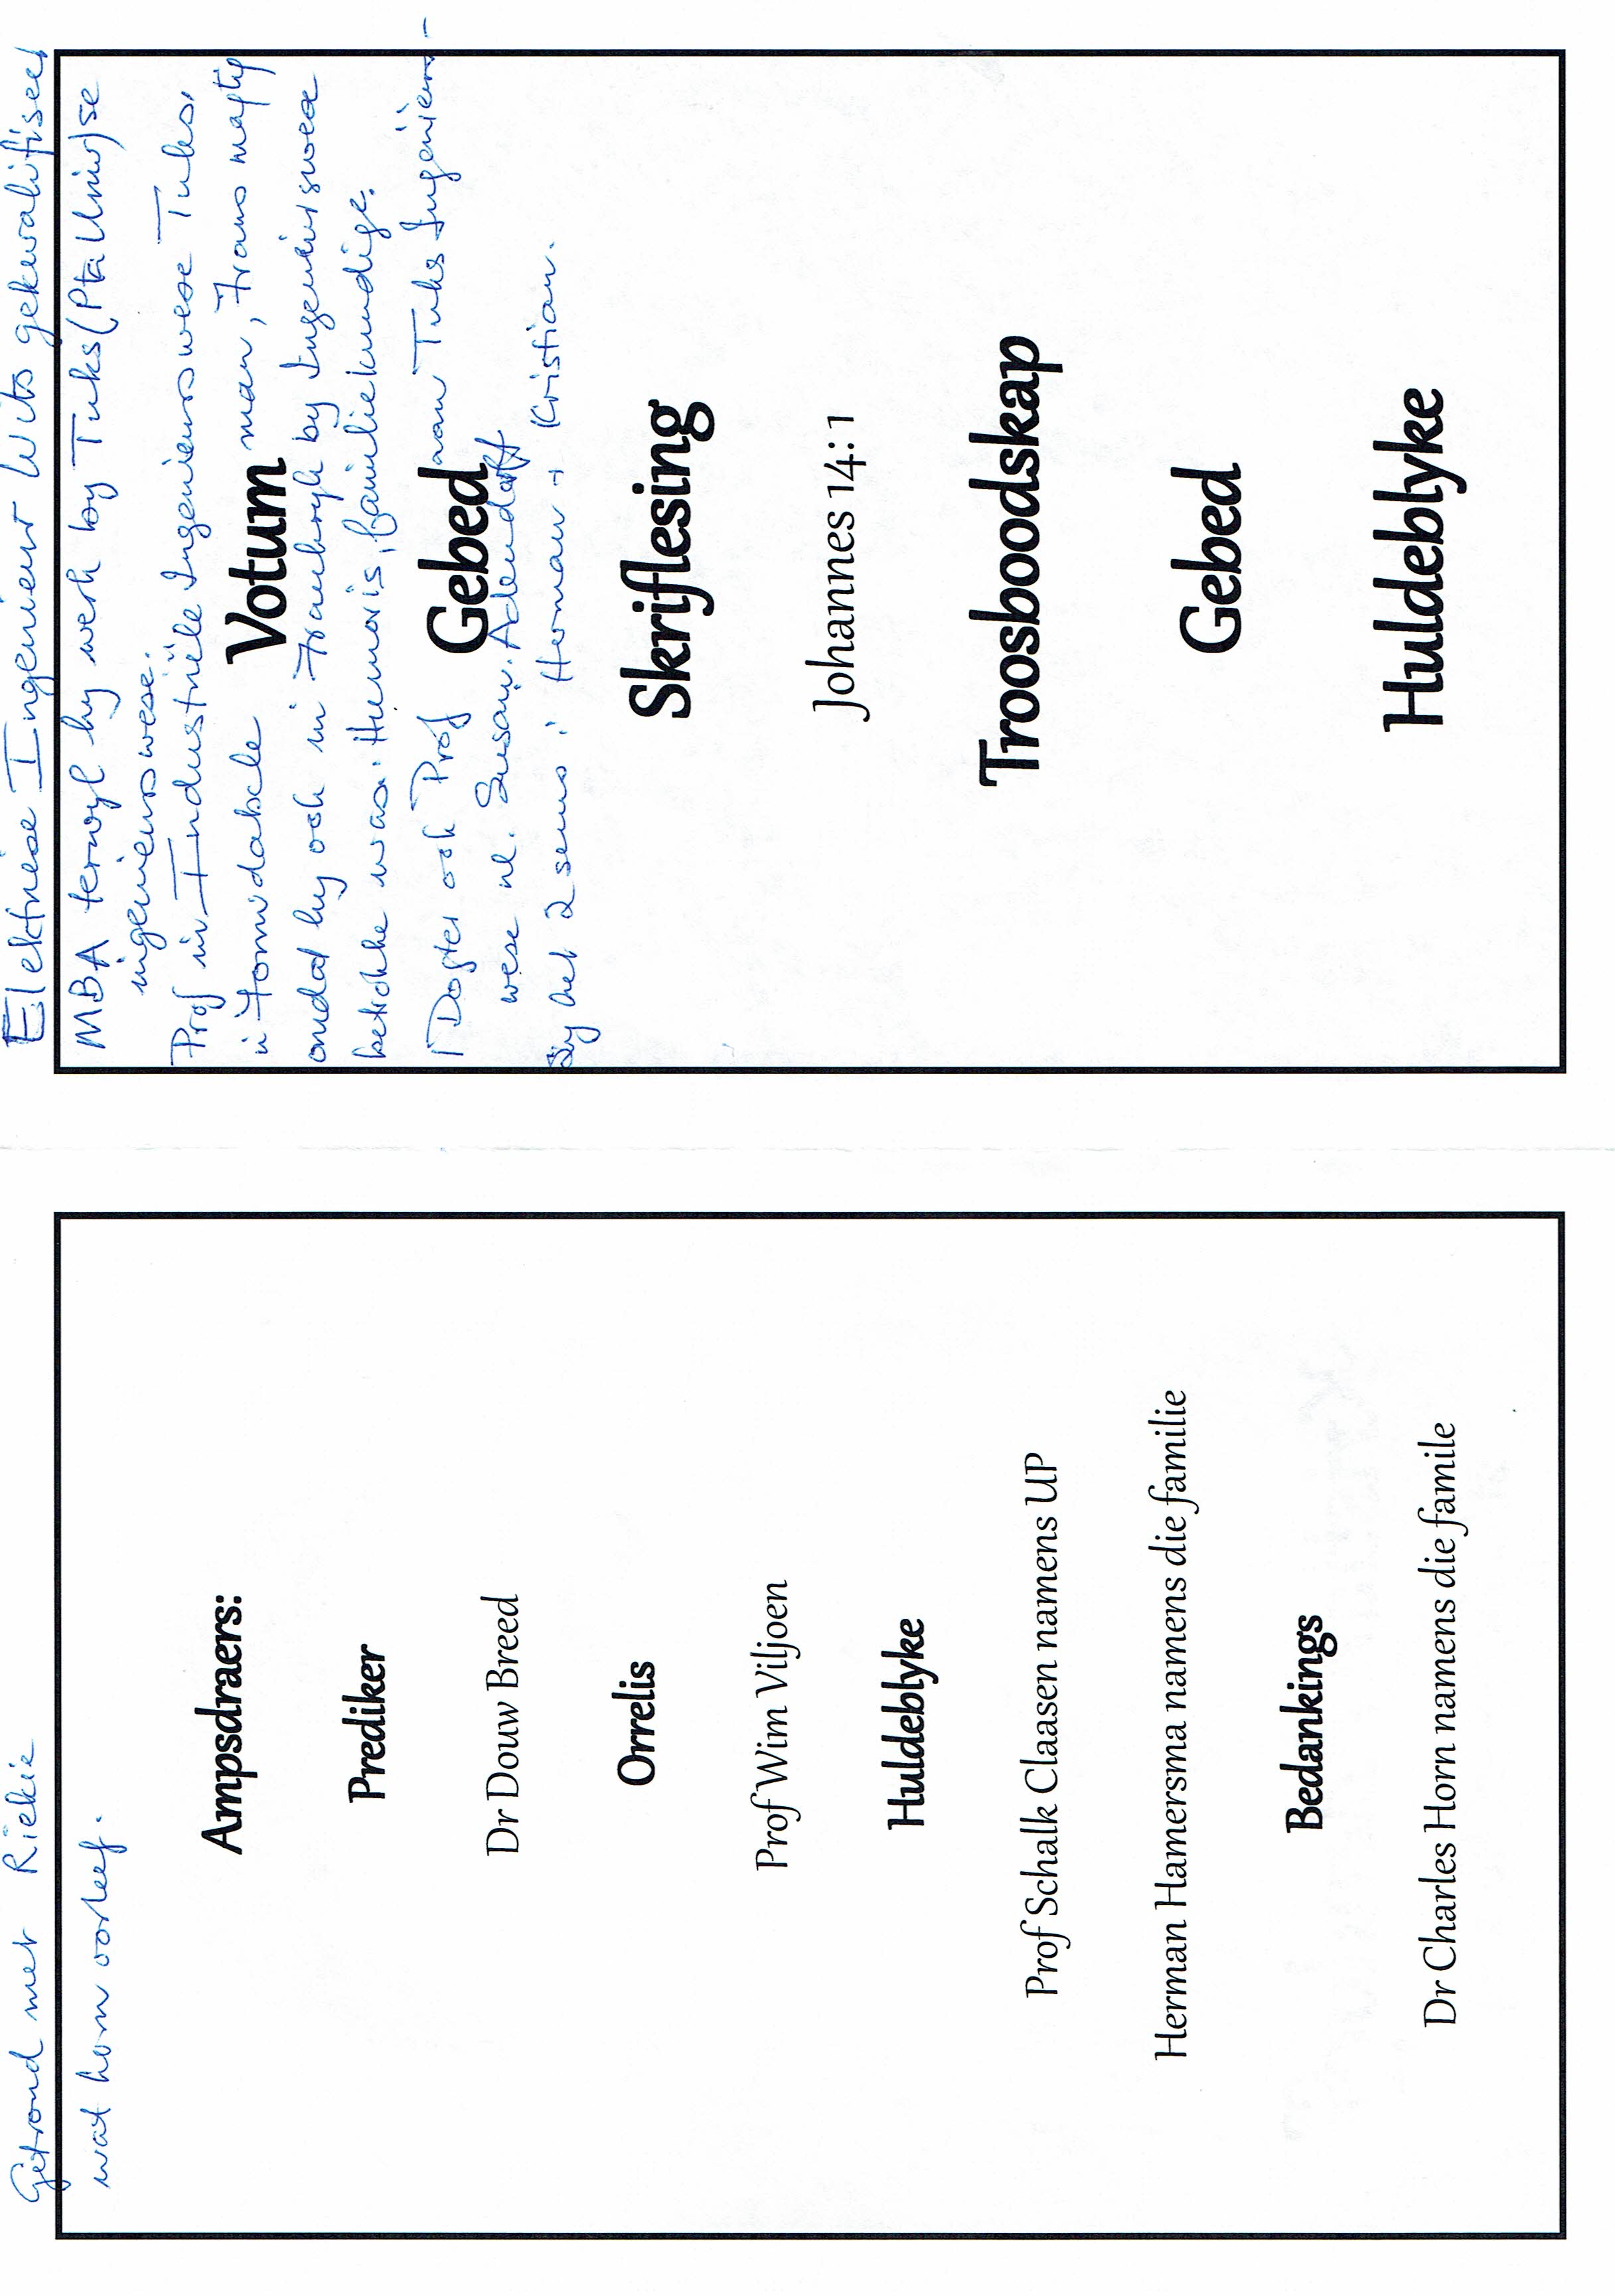 Getroud met Riekie
wat hom oorleef.
Ampsdraers:
Prediker
Dr Douw Breed
Orrelis
Prof Wim Viljoen
Huldeblyke
Prof Schalk Claasen namens UP
Herman Hamersma namens die familie
Bedankings
Dr Charles Horn namens die famile
Elektriese Ingenieur Wits gekwalifiseer
MBA terwyl hy werk by Tuks (Pta Univ) se
ingenieurswese.
Prof in Industriële Ingenieurswese Tuks.
'n Formidabele man, Frans magtig
Votum
omdat hy ook in Frankryk by Ingenieurswese
betrokke was. Humoris, familiekundige.
Dogter ook Prof aan Tuks Ingenieurs-
Gebed
wese nl. Susan Adendorff
Sy het 2 seuns: Herman + Kristian.
Skriflesing
Johannes 14: 1
Troosboodskap
Gebed
Huldeblyke